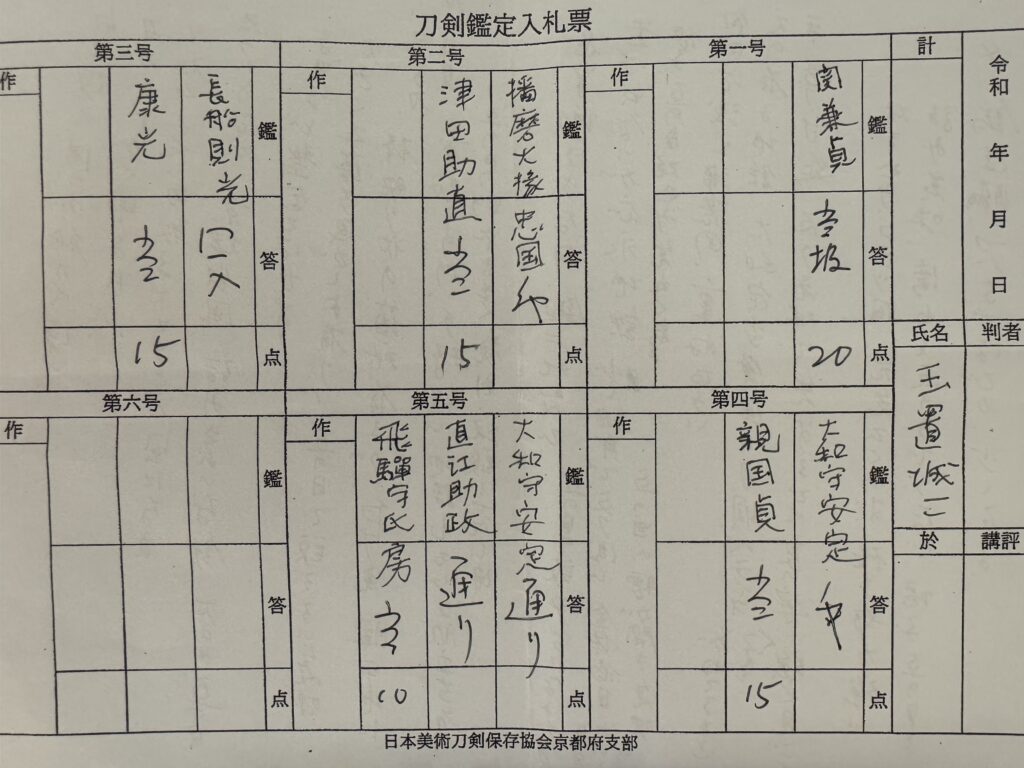 刀剣鑑定入札票
令和 年 月 日
判者
講評
計
氏名
玉置城二
於
第一号
鑑
答
点
関兼貞 当
20
作
第二号
鑑
答
点
播磨大掾忠国
津田助直 当
15
作
第三号
鑑
答
点
長船則光
康光 当
15
作
第四号
鑑
答
点
大和守安定
親国貞 当
15
作
第五号
鑑
答
点
大和守安定 通り
直江助政 通り
飛騨守氏房 当
10
作
第六号
鑑
答
点
作
日本美術刀剣保存協会京都府支部